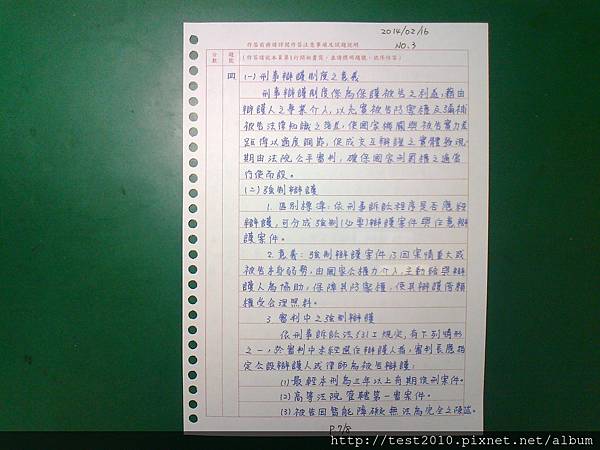 2014/02/16
NO.3
作答前務請詳閱作答注意事項及試題說明
分數
題號
(作答請從本頁第1行開始書寫，並請標明題號，依序作答)
四
(一)刑事辯護制度之意義
刑事辯護制度係為保護被告之利益，藉由
辯護人之專業介入，以充實被告防禦權及彌補
被告法律知識之落差，使國家機關與被告實力差
距得以適度調節，促成交互辯證之實體發現，
期由法院公平審判，確保國家刑罰權之適當
行使而設。
(二)強制辯護
1. 區別標準：依刑事訴訟程序是否應經
辯護，可分成強制(必要)辯護案件與任意辯
護案件。
2. 意義：強制辯護案件乃因案情重大或
被告本身弱勢，由國家公權力介入，主動給與辯
護人為協助，保障其防禦權，使其辯護倚賴
權受合理照料。
3. 審判中之強制辯護
依刑事訴訟法§31I規定，有下列情形
之一，於審判中未經選任辯護人者，審判長應指
定公設辯護人或律師為被告辯護：
(1)最輕本刑為三年以上有期徒刑案件。
(2)高等法院管轄第一審案件。
(3)被告因智能障礙無法為完全之陳述。
P.7/8
http://test2010.pixnet.net/album